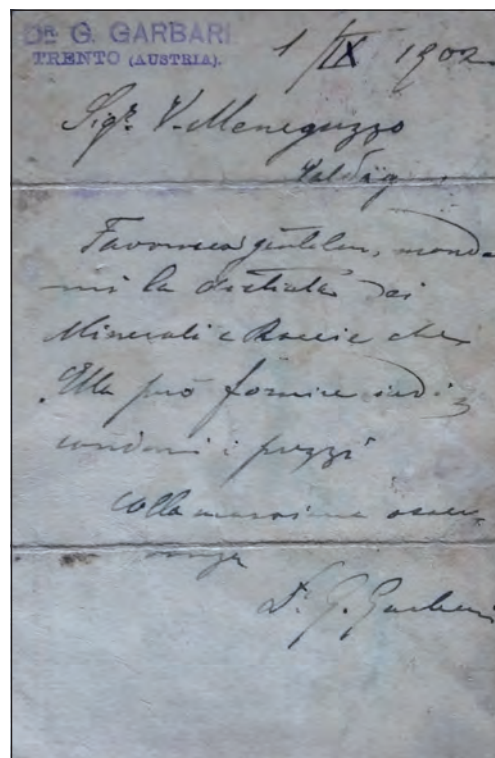 DR. G. GARBARI
TRENTO (AUSTRIA).
1/IX 1902
Sigr. V. Meneguzzo
Favorisca gentilm. manda
mi la distinta dei
Minerali e Roccie che
Ella può fornire indi
candomi i prezzi
Colla massima osser
vanza
Dr. G. Garbari